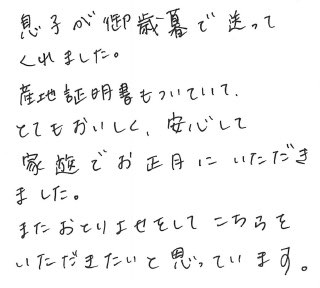 息子が御歳暮で送って
くれました。
産地証明書もついていて、
とてもおいしく、安心して
家族でお正月にいただき
ました。
またおとりよせをしてこちらを
いただきたいと思っています。